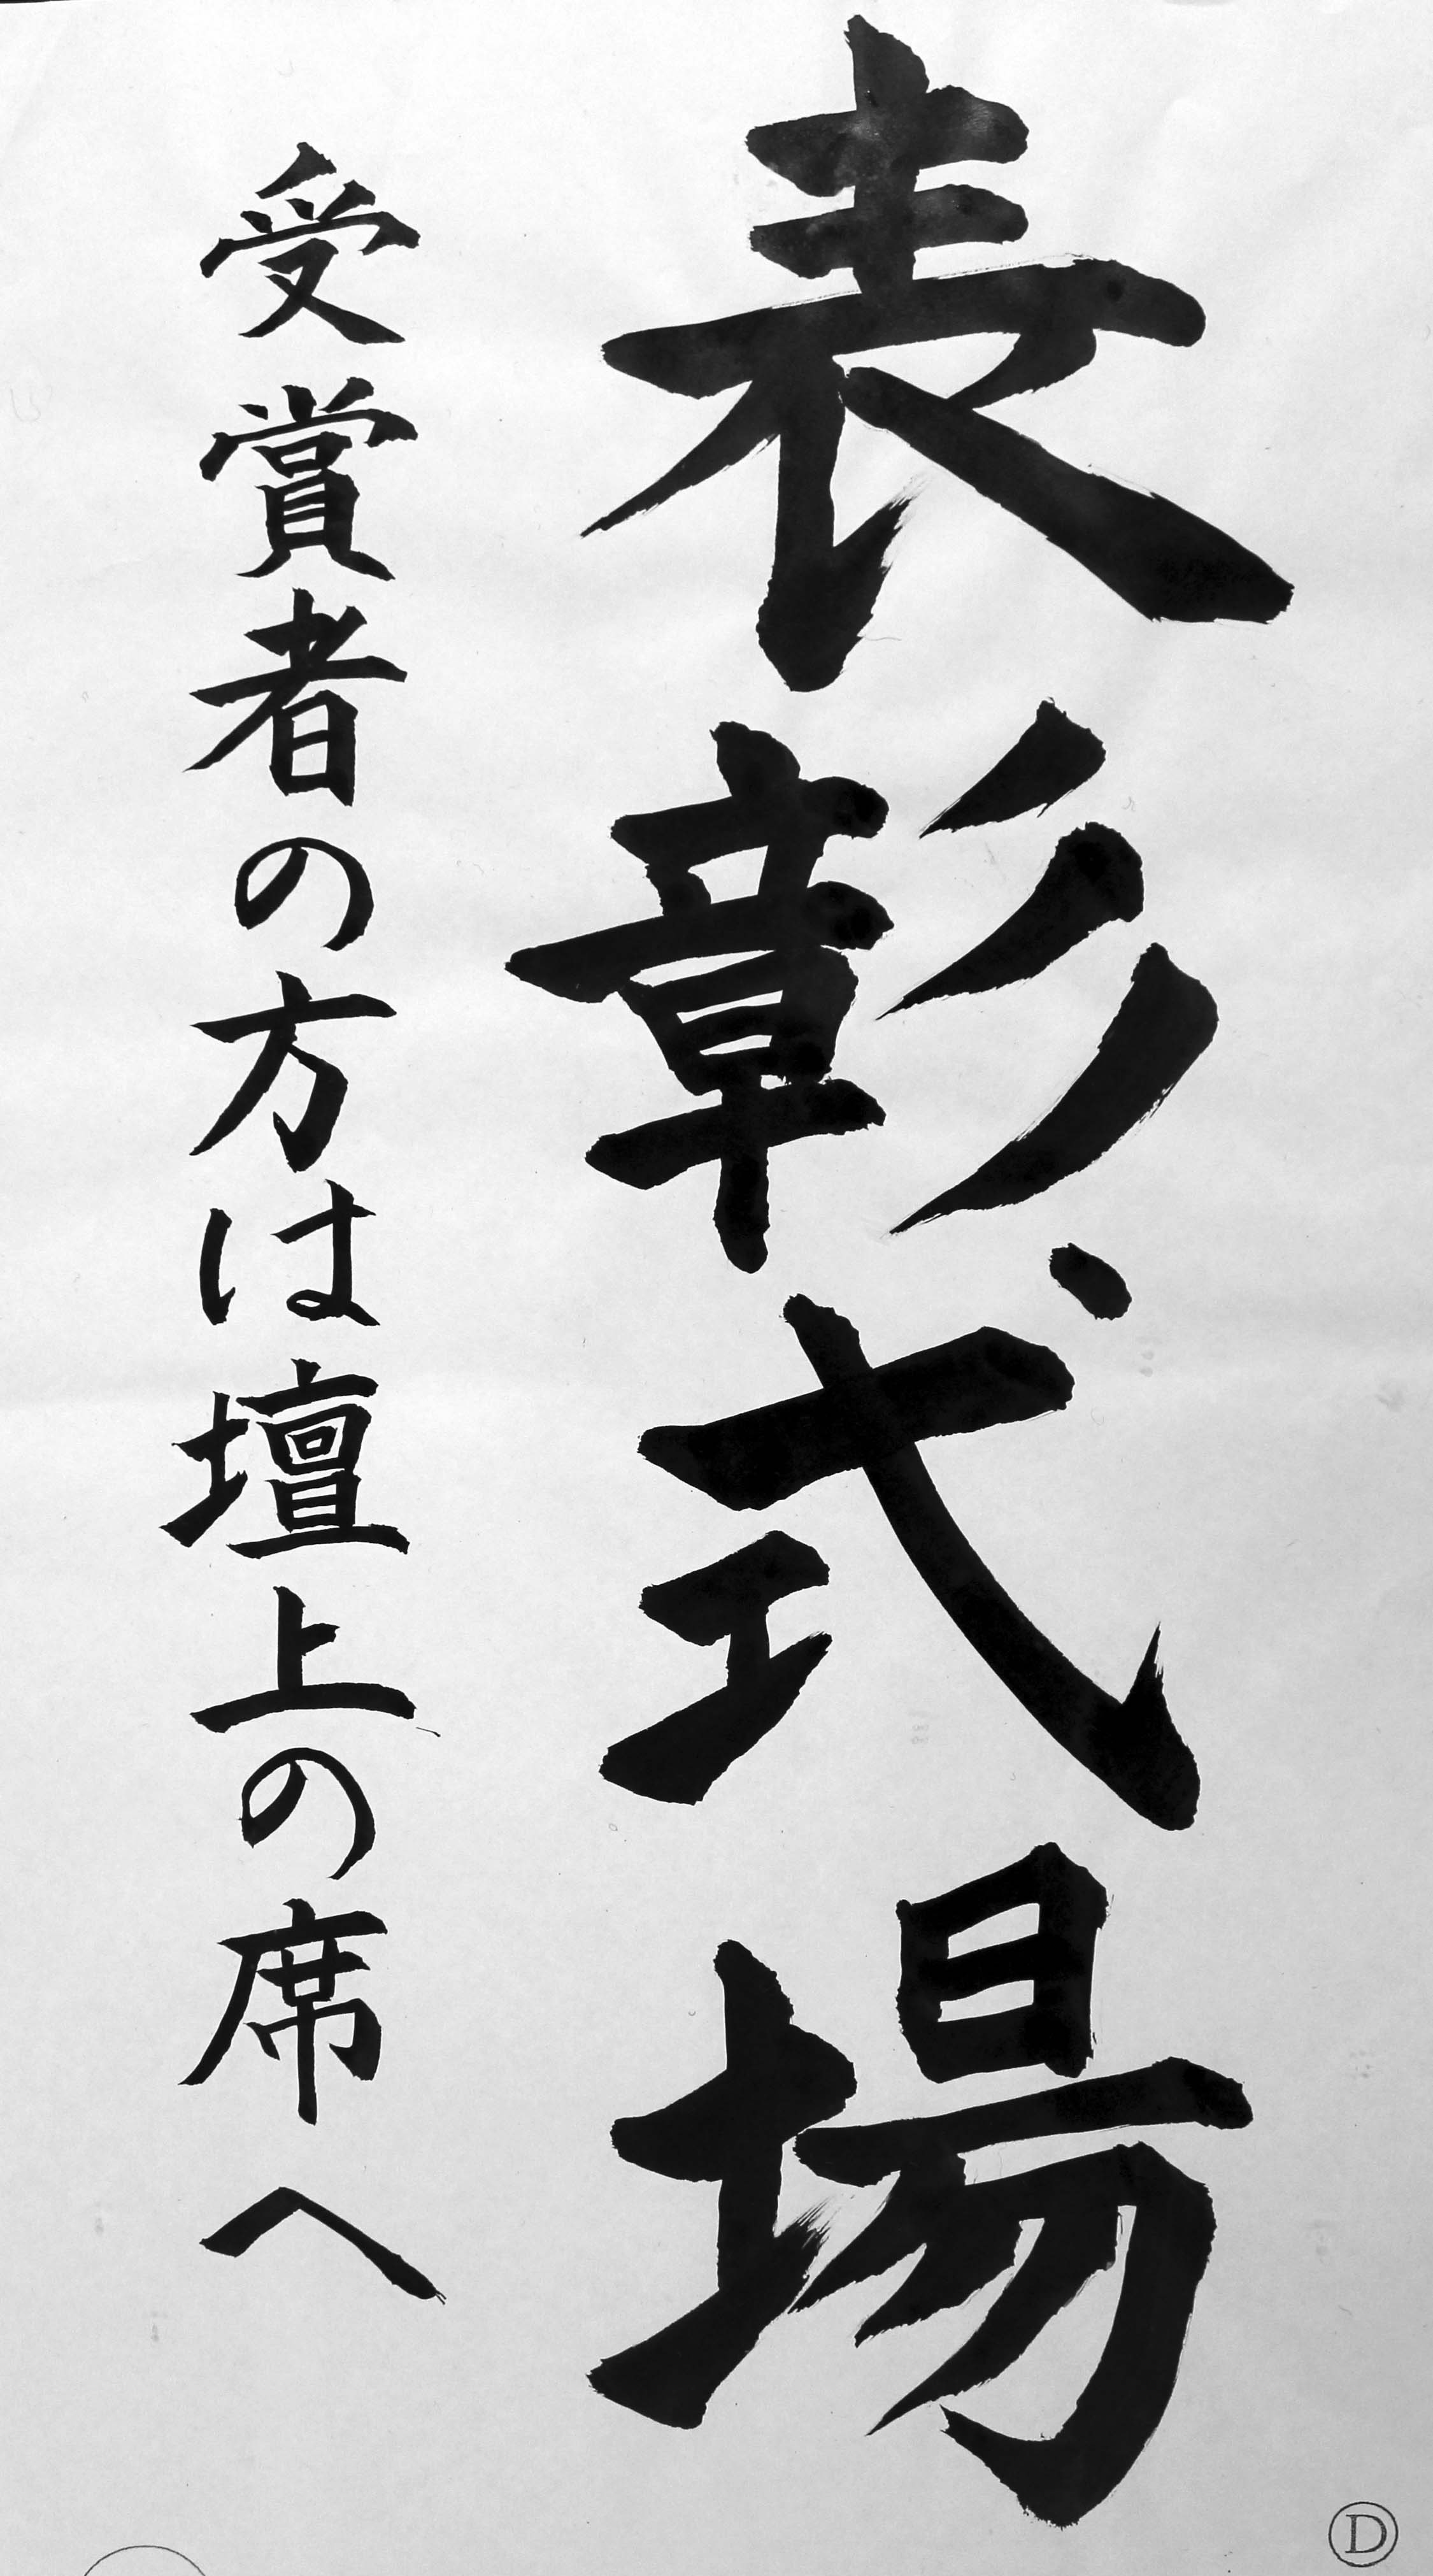 表彰式場
受賞者の方は壇上の席へ
Ⓓ